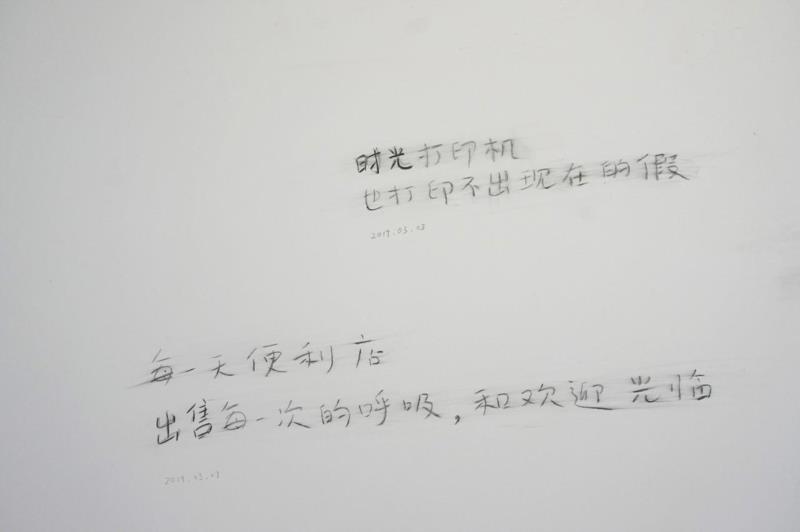 时光打印机
也打印不出现在的假
2019.03.03
每一天便利店
出售每一次的呼吸，和欢迎光临
2019.03.03